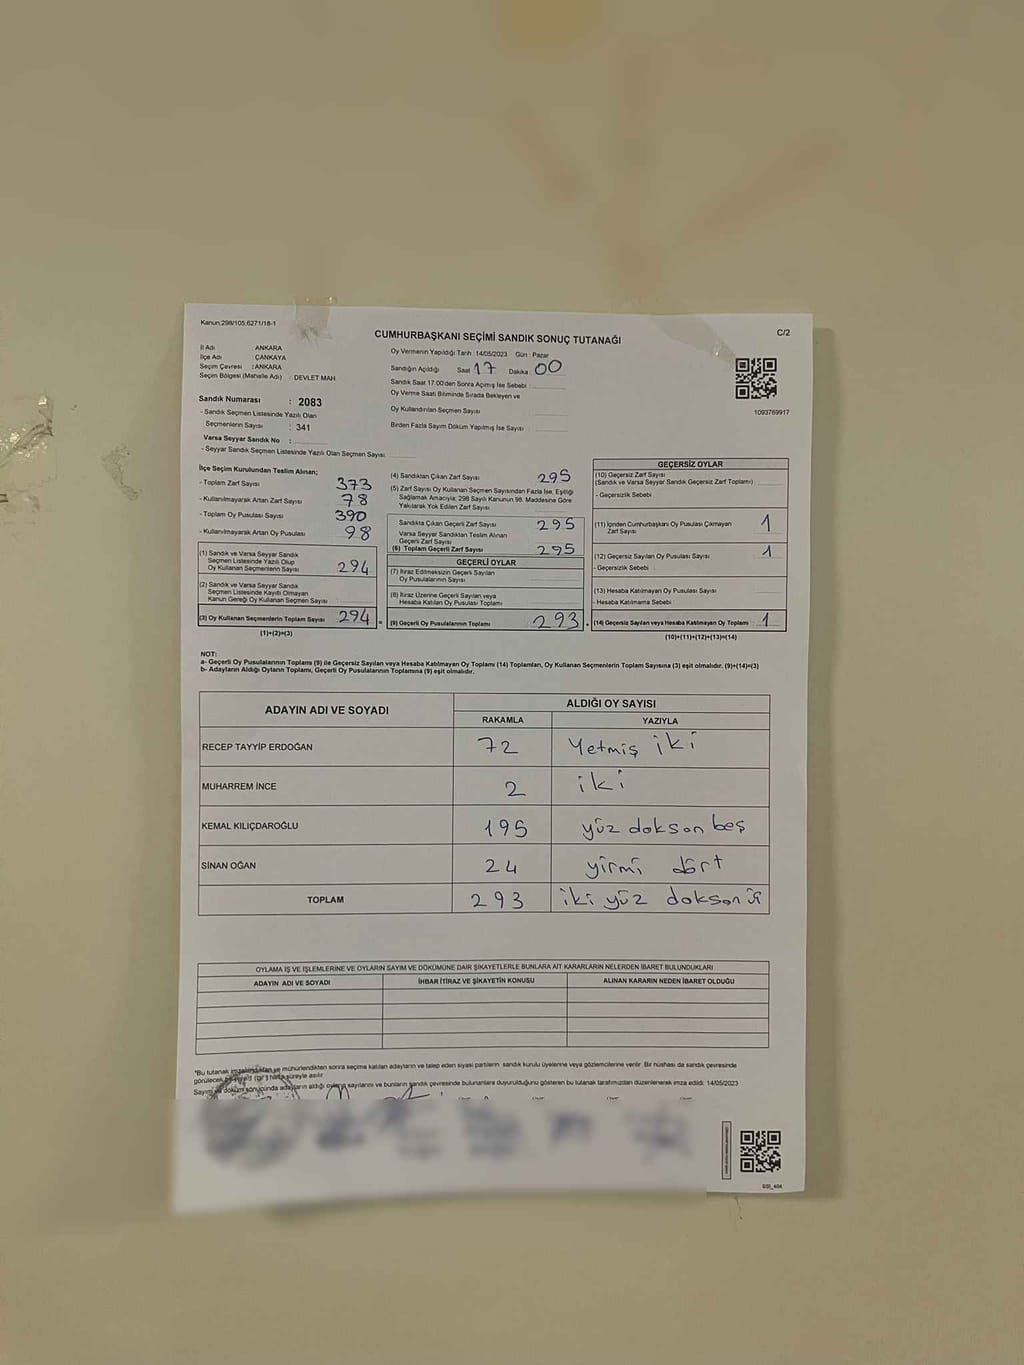 Kanun:298/105;6271/18-1
C/2
CUMHURBAŞKANI SEÇİMİ SANDIK SONUÇ TUTANAĞI
İl Adı : ANKARA
İlçe Adı : ÇANKAYA
Seçim Çevresi : ANKARA
Seçim Bölgesi (Mahalle Adı) : DEVLET MAH
Oy Vermenin Yapıldığı Tarih :14/05/2023 Gün : Pazar
Sandığın Açıldığı Saat 17 Dakika : 00
Sandık Saat 17:00'den Sonra Açılmış İse Sebebi :
Oy Verme Saati Bitiminde Sırada Bekleyen ve
Oy Kullandırılan Seçmen Sayısı
Birden Fazla Sayım Döküm Yapılmış İse Sayısı
1093769917
Sandık Numarası : 2083
- Sandık Seçmen Listesinde Yazılı Olan
Seçmenlerin Sayısı : 341
Varsa Seyyar Sandık No :
- Seyyar Sandık Seçmen Listesinde Yazılı Olan Seçmen Sayısı
İlçe Seçim Kurulundan Teslim Alınan;
- Toplam Zarf Sayısı 373
- Kullanılmayarak Artan Zarf Sayısı 78
- Toplam Oy Pusulası Sayısı 390
- Kullanılmayarak Artan Oy Pusulası 98
(1) Sandık ve Varsa Seyyar Sandık
Seçmen Listesinde Yazılı Olup
Oy Kullanan Seçmenlerin Sayısı 294
(2) Sandık ve Varsa Seyyar Sandık
Seçmen Listesinde Kayıtlı Olmayan
Kanun Gereği Oy Kullanan Seçmen Sayısı
(3) Oy Kullanan Seçmenlerin Toplam Sayısı 294 =
(1)+(2)=(3)
(4) Sandıktan Çıkan Zarf Sayısı 295
(5) Zarf Sayısı Oy Kullanan Seçmen Sayısından Fazla İse, Eşitliği
Sağlamak Amacıyla; 298 Sayılı Kanunun 98. Maddesine Göre
Yakılarak Yok Edilen Zarf Sayısı
Sandıkta Çıkan Geçerli Zarf Sayısı 295
Varsa Seyyar Sandıktan Teslim Alınan
Geçerli Zarf Sayısı
(6) Toplam Geçerli Zarf Sayısı 295
GEÇERLİ OYLAR
(7) İtiraz Edilmeksizin Geçerli Sayılan
Oy Pusulalarının Sayısı
(8) İtiraz Üzerine Geçerli Sayılan veya
Hesaba Katılan Oy Pusulası Toplamı
(9) Geçerli Oy Pusulalarının Toplamı 293 +
GEÇERSİZ OYLAR
(10) Geçersiz Zarf Sayısı
(Sandık ve Varsa Seyyar Sandık Geçersiz Zarf Toplamı)
- Geçersizlik Sebebi
(11) İçinden Cumhurbaşkanı Oy Pusulası Çıkmayan
Zarf Sayısı 1
(12) Geçersiz Sayılan Oy Pusulası Sayısı 1
- Geçersizlik Sebebi :
(13) Hesaba Katılmayan Oy Pusulası Sayısı
- Hesaba Katılmama Sebebi
(14) Geçersiz Sayılan veya Hesaba Katılmayan Oy Toplamı 1
(10)+(11)+(12)+(13)=(14)
NOT:
a- Geçerli Oy Pusulalarının Toplamı (9) ile Geçersiz Sayılan veya Hesaba Katılmayan Oy Toplamı (14) Toplamları, Oy Kullanan Seçmenlerin Toplam Sayısına (3) eşit olmalıdır. (9)+(14)=(3)
b- Adayların Aldığı Oyların Toplamı, Geçerli Oy Pusulalarının Toplamına (9) eşit olmalıdır.
ADAYIN ADI VE SOYADI
ALDIĞI OY SAYISI
RAKAMLA YAZIYLA
RECEP TAYYİP ERDOĞAN 72 Yetmiş iki
MUHARREM İNCE 2 iki
KEMAL KILIÇDAROĞLU 195 yüz dokson beş
SİNAN OĞAN 24 yirmi dört
TOPLAM 293 iki yüz dokson üç
OYLAMA İŞ VE İŞLEMLERİNE VE OYLARIN SAYIM VE DÖKÜMÜNE DAİR ŞİKAYETLERLE BUNLARA AİT KARARLARIN NELERDEN İBARET BULUNDUKLARI
ADAYIN ADI VE SOYADI İHBAR İTİRAZ VE ŞİKAYETİN KONUSU ALINAN KARARIN NEDEN İBARET OLDUĞU
"Bu tutanak imzalandıktan ve mühürlendikten sonra seçime katılan adayların ve talep eden siyasi partilerin sandık kurulu üyelerine veya gözlemcilerine verilir. Bir nüshası da sandık çevresinde
görülecek bir yere 1 (bir) hafta süreyle asılır
Sayım ve döküm sonucunda adayların aldığı oyların sayılarını ve bunların sandık çevresinde bulunanlara duyurulduğunu gösteren bu tutanak tarafımızdan düzenlenerek imza edildi. 14/05/2023
SSI_404